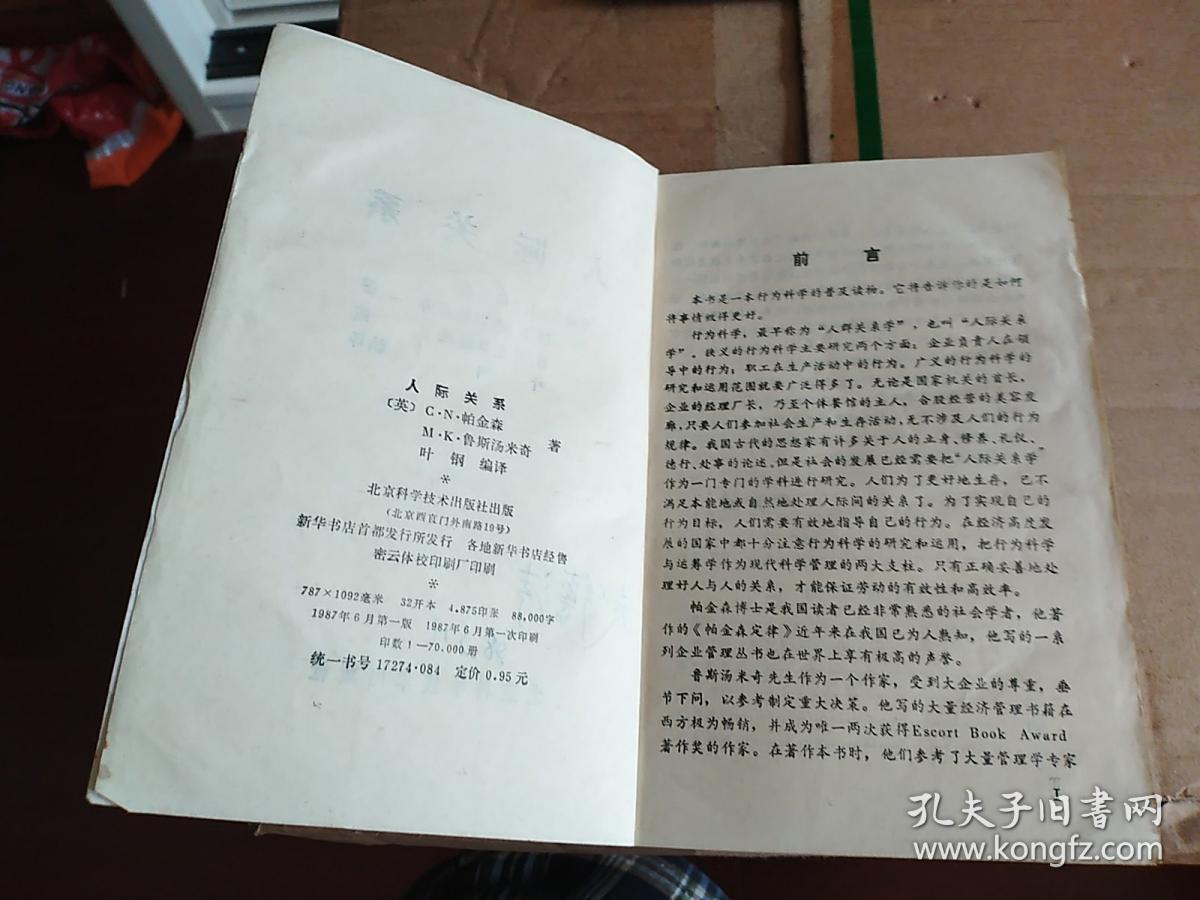 人际关系
〔英〕C·N·帕金森
M·K·鲁斯汤米奇 著
叶 钢 编译
*
北京科学技术出版社出版
(北京西直门外南路19号)
新华书店首都发行所发行 各地新华书店经售
密云体校印刷厂印刷
*
787×1092毫米 32开本 4.875印张 88,000字
1987年6月第一版 1987年6月第一次印刷
印数1—70,000册
统一书号17274·084 定价0.95元
前 言
本书是一本行为科学的普及读物。它将告诉你的是如何
将事情做得更好。
行为科学,最早称为“人群关系学”,也叫“人际关系
学”。狭义的行为科学主要研究两个方面:企业负责人在领
导中的行为;职工在生产活动中的行为。广义的行为科学的
研究和运用范围就要广泛得多了。无论是国家机关的首长,
企业的经理厂长,乃至个体餐馆的主人,合股经营的美容发
廊,只要人们参加社会生产和生存活动,无不涉及人们的行为
规律。我国古代的思想家有许多关于人的立身、修养、礼仪、
德行、处事的论述。但是社会的发展已经需要把“人际关系学”
作为一门专门的学科进行研究。人们为了更好地生存,已不
满足本能地或自然地处理人际间的关系了。为了实现自己的
行为目标,人们需要有效地指导自己的行为。在经济高度发
展的国家中都十分注意行为科学的研究和运用,把行为科学
与运筹学作为现代科学管理的两大支柱。只有正确妥善地处
理好人与人的关系,才能保证劳动的有效性和高效率。
帕金森博士是我国读者已经非常熟悉的社会学者,他著
作的《帕金森定律》近年来在我国已为人熟知,他写的一系
列企业管理丛书也在世界上享有极高的声誉。
鲁斯汤米奇先生作为一个作家,受到大企业的尊重,垂
节下问,以参考制定重大决策。他写的大量经济管理书籍在
西方极为畅销,并成为唯一两次获得Escort Book Award
著作奖的作家。在著作本书时,他们参考了大量管理学专家
I
孔夫子旧书网
www.kongfz.com